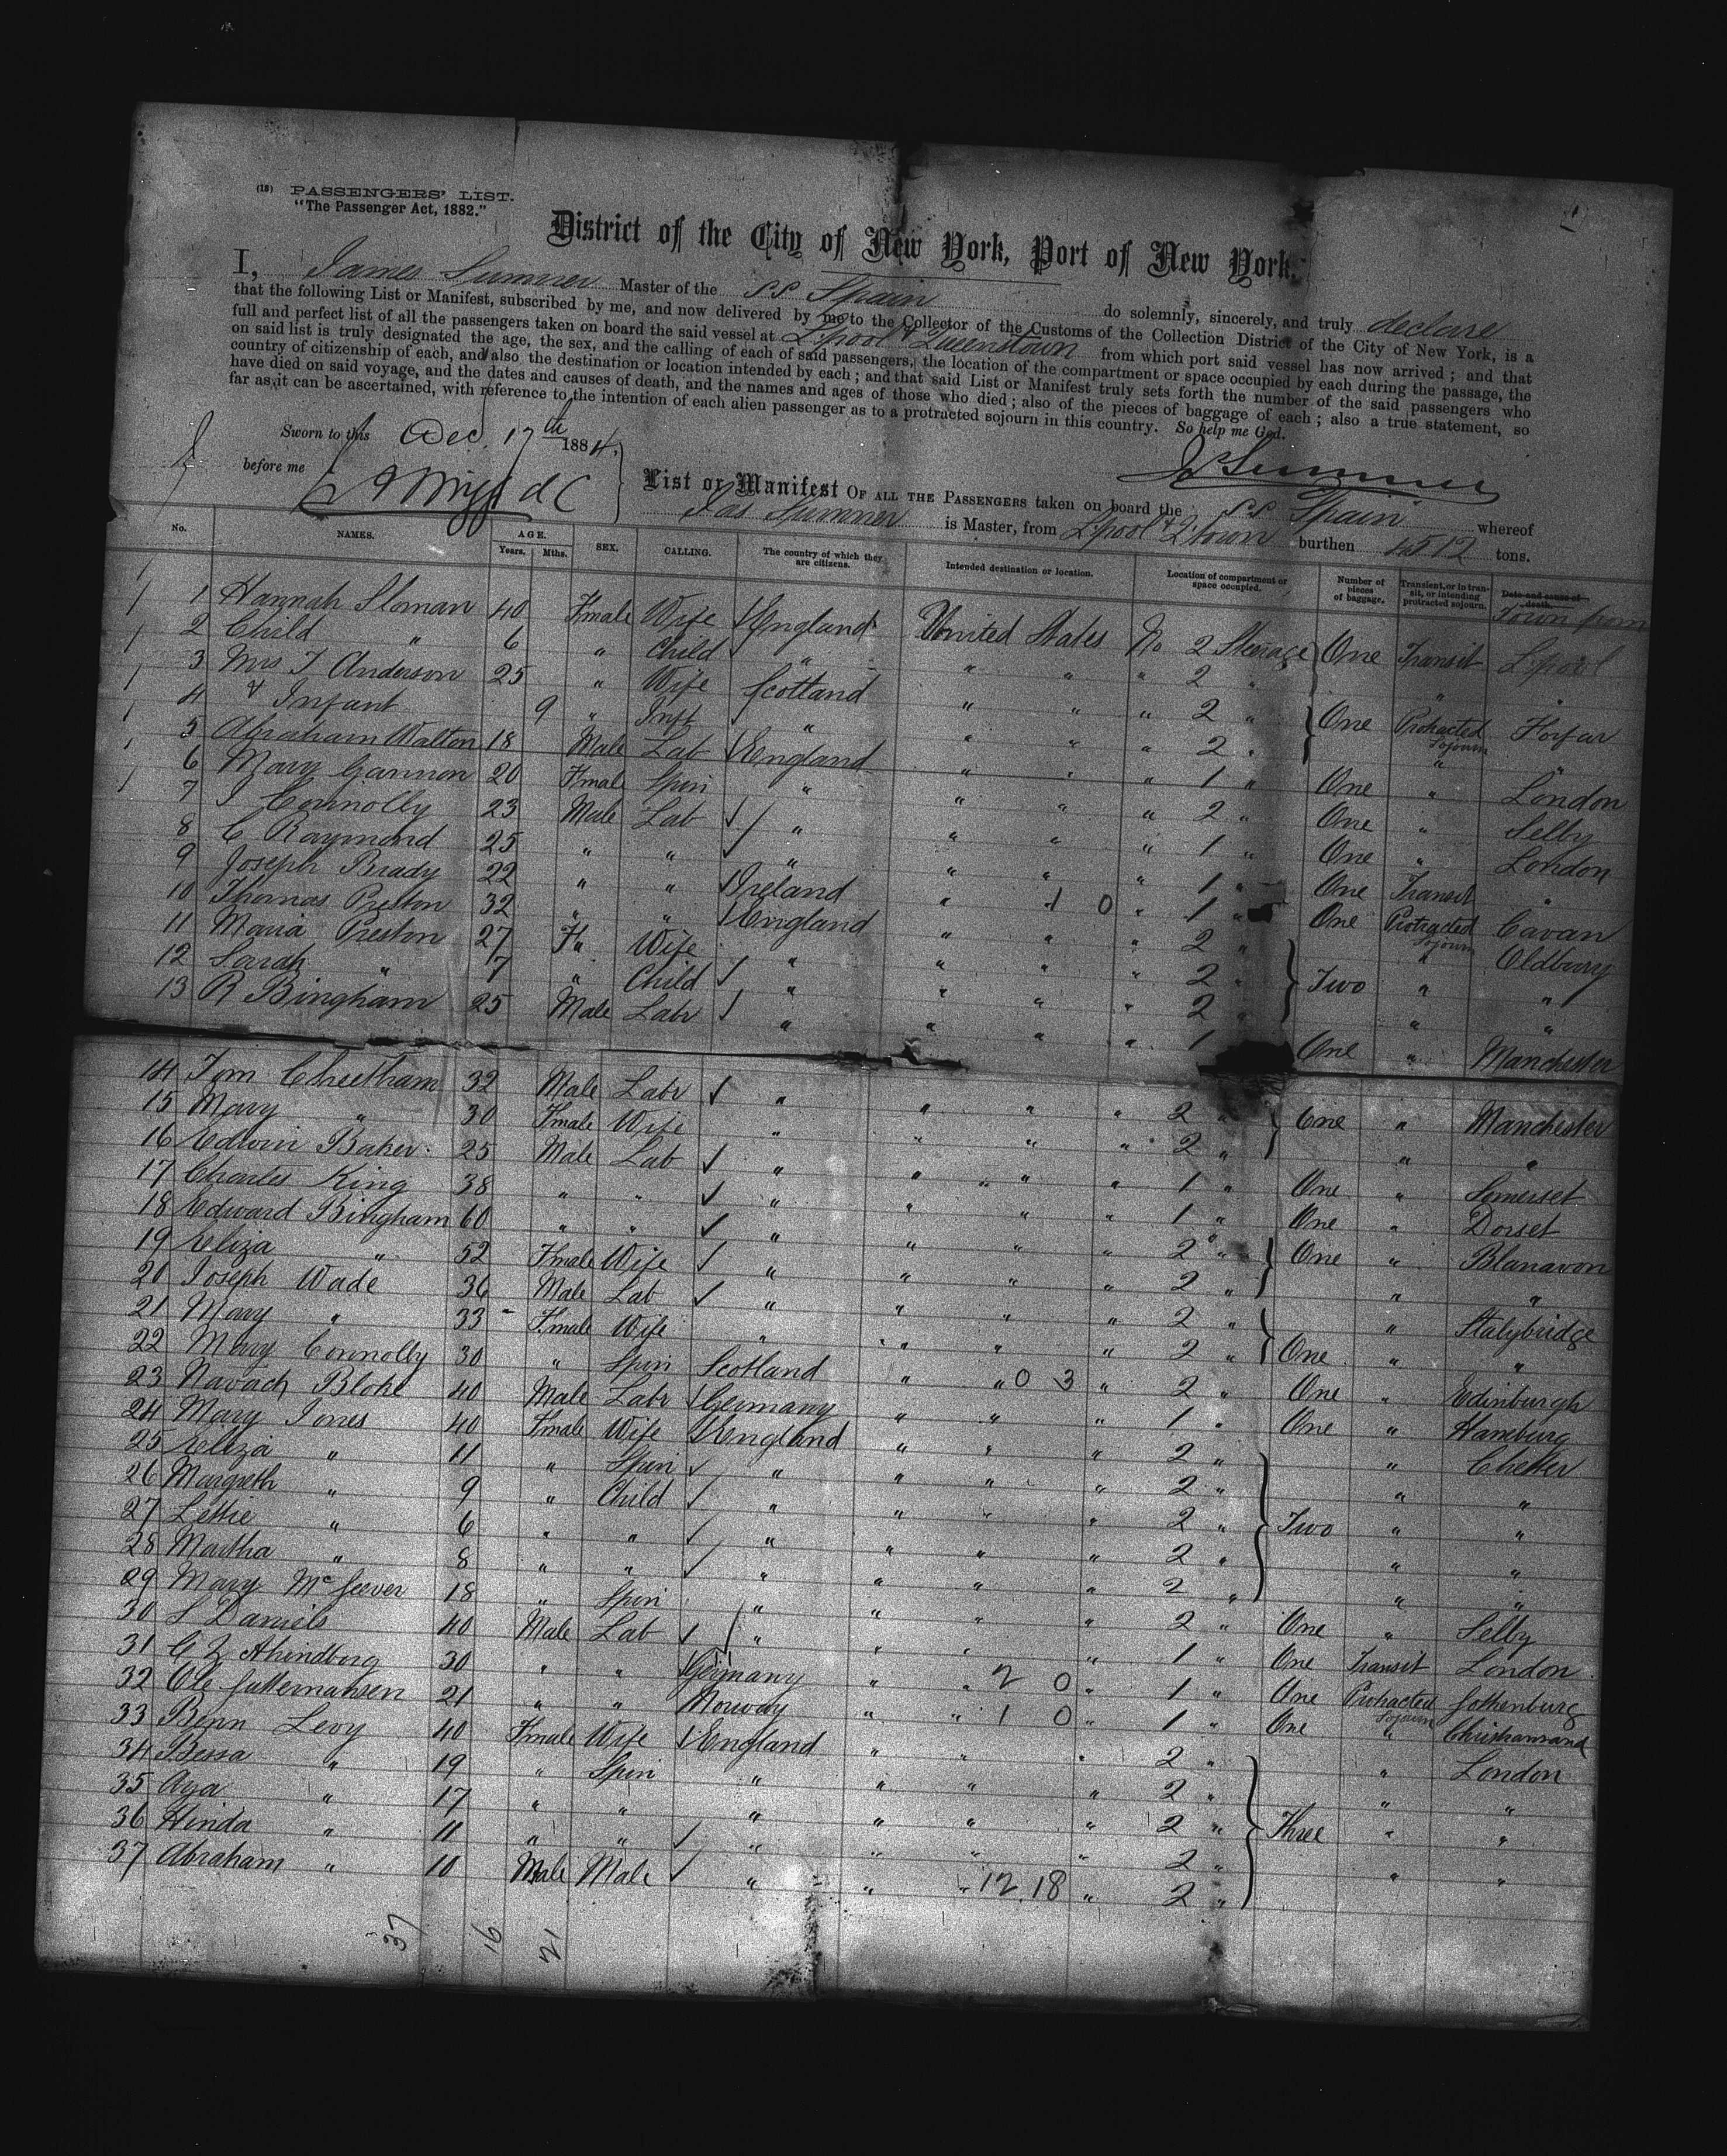 (18) PASSENGERS' LIST.
"The Passenger Act, 1882."
District of the City of New York, Port of New York.
I, James Sumner Master of the S.S Spain do solemnly, sincerely, and truly declare
that the following List or Manifest, subscribed by me, and now delivered by me to the Collector of the Customs of the Collection District of the City of New York, is a
full and perfect list of all the passengers taken on board the said vessel at L'pool & Queenstown from which port said vessel has now arrived; and that
on said list is truly designated the age, the sex, and the calling of each of said passengers, the location of the compartment or space occupied by each during the passage, the
country of citizenship of each, and also the destination or location intended by each; and that said List or Manifest truly sets forth the number of the said passengers who
have died on said voyage, and the dates and causes of death, and the names and ages of those who died; also of the pieces of baggage of each; also a true statement, so
far as it can be ascertained, with reference to the intention of each alien passenger as to a protracted sojourn in this country. So help me God.
Sworn to this Dec. 17th 1884.
before me
Js Sumner
List or Manifest OF ALL THE PASSENGERS taken on board the S.S Spain whereof
Jas Sumner is Master, from L'pool & Q'town burthen 4512 tons.
No. NAMES. AGE. Years. Mths. SEX. CALLING. The country of which they are citizens. Intended destination or location. Location of compartment or space occupied. Number of pieces of baggage. Transient, or in transit, or intending protracted sojourn. Date and cause of death. Town from
1 Hannah Sloman 40 Fmale Wife England United States No 2 Steerage One Transit L'pool
2 Child " 6 " Child " " " " 2 " " "
3 Mrs T Anderson 25 " Wife Scotland " " " 2 " One Protracted Sojourn Forfar
4 & Infant 9 " Inft " " " " 2 " " "
5 Abraham Walton 18 Male Lab England " " " 1 " One " London
6 Mary Gannon 20 Fmale Spin " " " " 2 " One " Selby
7 J Connolly 23 Male Lab " " " " 1 " One " London
8 C Raymond 25 " " " " " " 1 " One Transit "
9 Joseph Brady 22 " " Ireland " 1 0 " 1 " One Protracted Sojourn Cavan
10 Thomas Preston 32 " " England " " " 2 " " Oldbury
11 Maria Preston 27 F" Wife " " " " 2 " Two " "
12 Sarah " 7 " Child " " " " 2 " " "
13 R Bingham 25 Male Labr " " " " 1 One " Manchester
14 Tom Cheetham 32 Male Labr " " " " 2 " One " Manchester
15 Mary " 30 Fmale Wife " " " " 2 " " "
16 Edwin Baker 25 Male Lab " " " " 1 " One " Somerset
17 Charles King 38 " " " " " " 1 " One " Dorset
18 Edward Bingham 60 " " " " " " 2 " One " Blanavon
19 Eliza " 52 Fmale Wife " " " " 2 " " "
20 Joseph Wade 36 Male Lab " " " " 2 " " Stalybridge
21 Mary " 33 Fmale Wife " " " " 2 " One " "
22 Mary Connolly 30 " Spin Scotland " " 0 3 " 2 " One " Edinburgh
23 Navach Bloke 40 Male Labr Germany " " " 1 " One " Hamburg
24 Mary Jones 40 Fmale Wife England " " " 2 " " Chester
25 Eliza " 11 " Spin " " " " 2 " " "
26 Margreth " 9 " Child " " " " 2 " Two " "
27 Lettie " 6 " " " " " " 2 " " "
28 Martha " 8 " " " " " " 2 " " "
29 Mary 18 " Spin " " " " 2 " One " Selby
30 S Daniels 40 Male Lab " " " " 1 " One Transit London
31 30 " " Germany " " 2 0 " 1 " One Protracted Sojourn Gothenburg
32 Ole 21 " " Norway " " 1 0 " 1 " One " Christiansand
33 Benn Levy 40 Fmale Wife England " " " 2 " " London
34 Bessa " 19 " Spin " " " " 2 " " "
35 Aya " 17 " " " " " " 2 " Three " "
36 Hinda " 11 " " " " " " 2 " " "
37 Abraham " 10 Male Male " " " 12 18 " 2 "
37 16 21